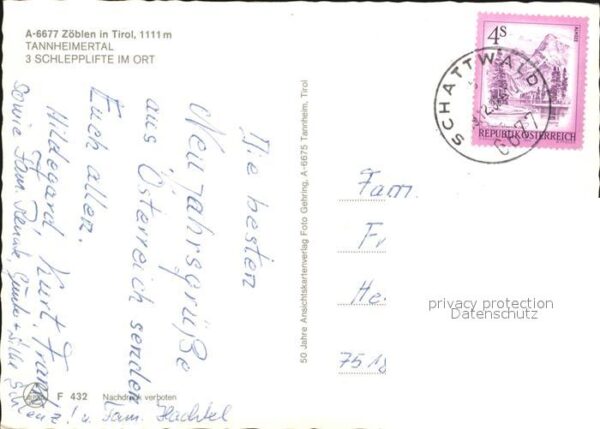 A-6677 Zöblen in Tirol, 1111 m
TANNHEIMERTAL
3 SCHLEPPLIFTE IM ORT
Die besten
Neujahrsgrüße
aus Österreich senden
Euch allen.
Hildegard, Kurt, Franz
Sowie Fam.
u. Fam. Hachtel
50 Jahre Ansichtskartenverlag Foto Gehring, A-6675 Tannheim, Tirol
F 432 Nachdruck verboten
4S
REPUBLIK ÖSTERREICH
SCHATTWALD
6677
Fam.
Fr
He
751
privacy protection
Datenschutz